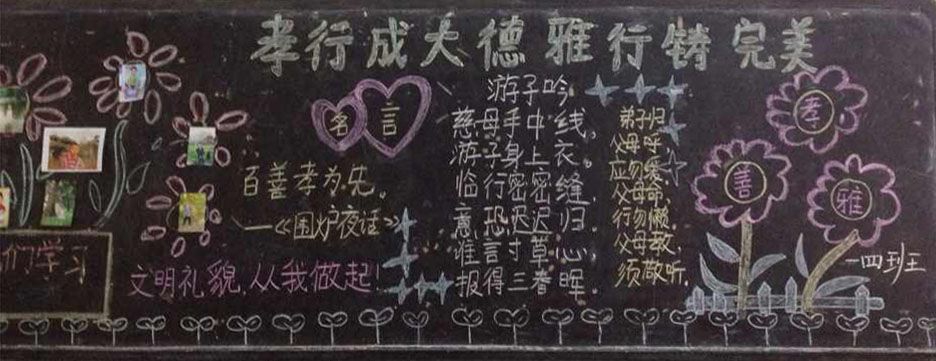 孝行成大德 雅行铸完美
名言
百善孝为先。
——《围炉夜话》
文明礼貌,从我做起!
们学习
游子吟
慈母手中线,
游子身上衣。
临行密密缝,
意恐迟迟归。
谁言寸草心,
报得三春晖。
弟子归
父母呼,
应勿爱,
父母命,
行勿懒,
父母教,
须敬听。
孝
善
雅
一四班王